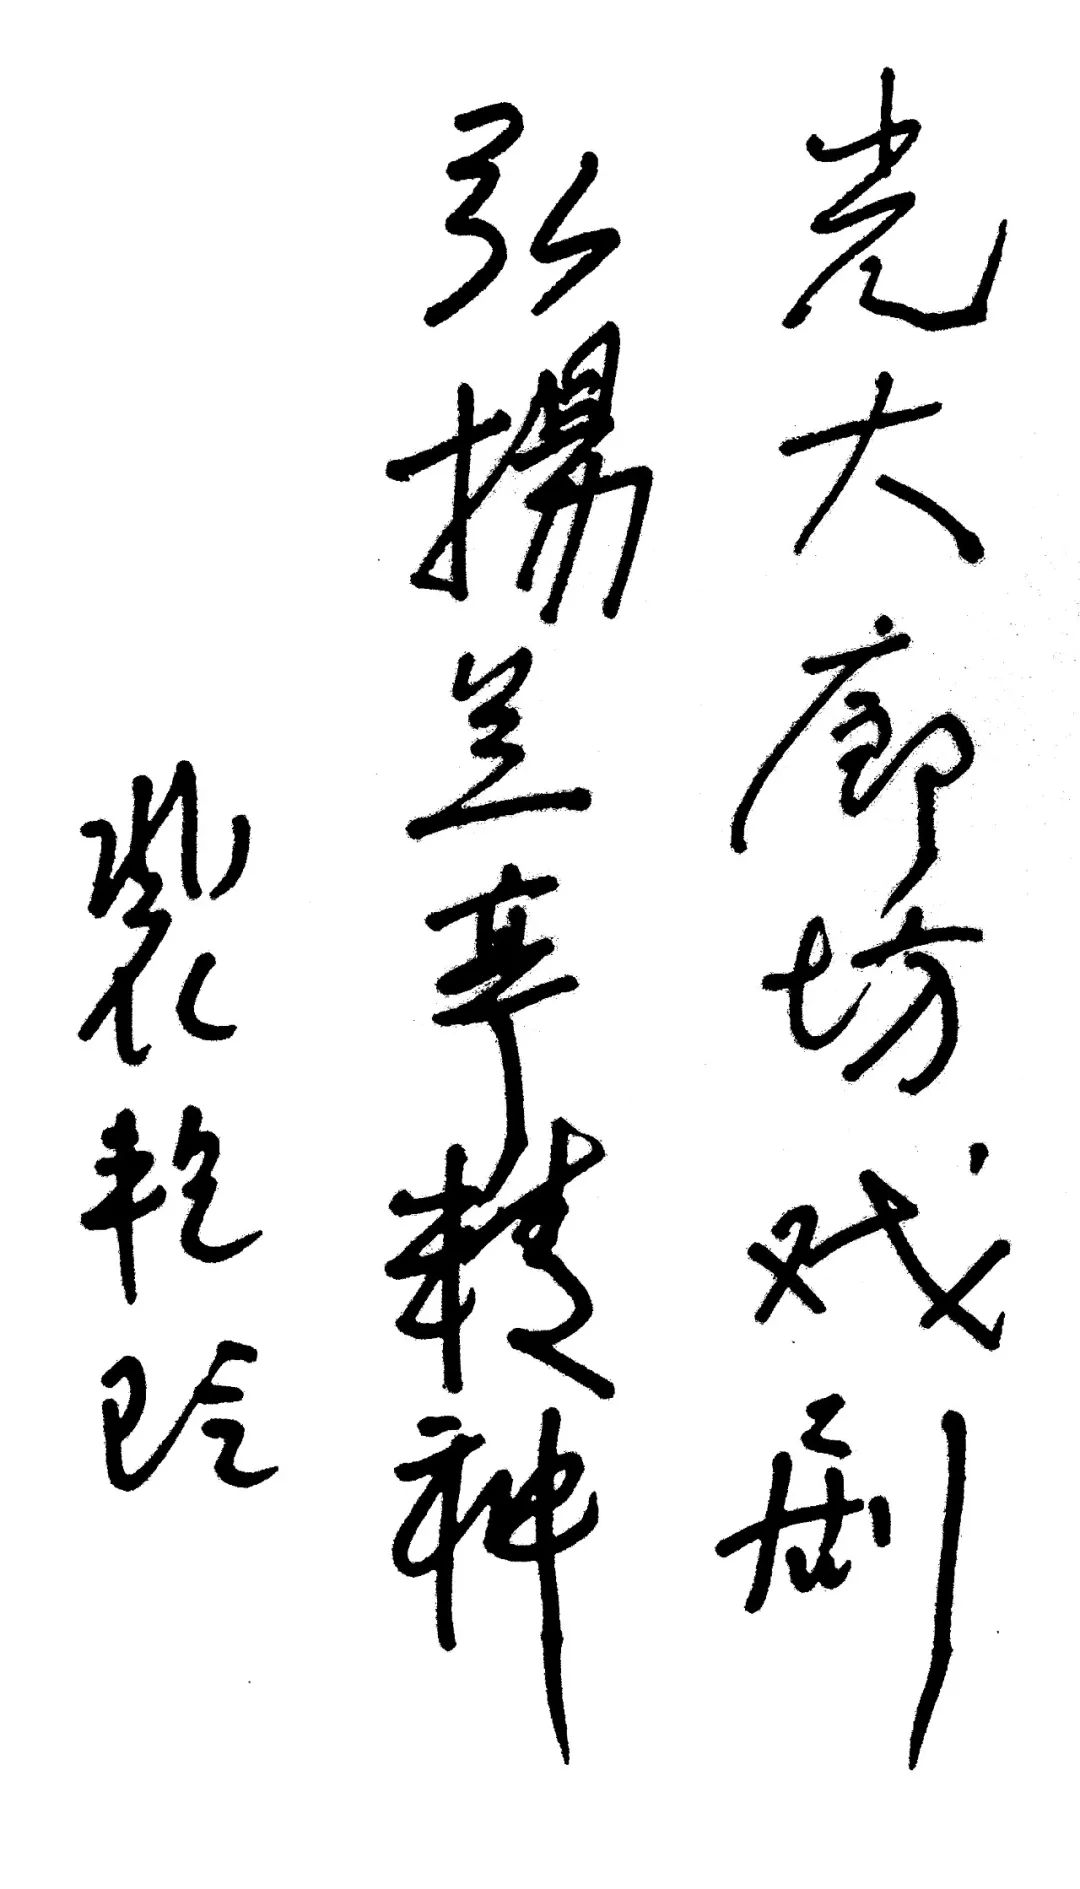 光大廊坊戏剧
弘揚兰亭精神
裴艳玲